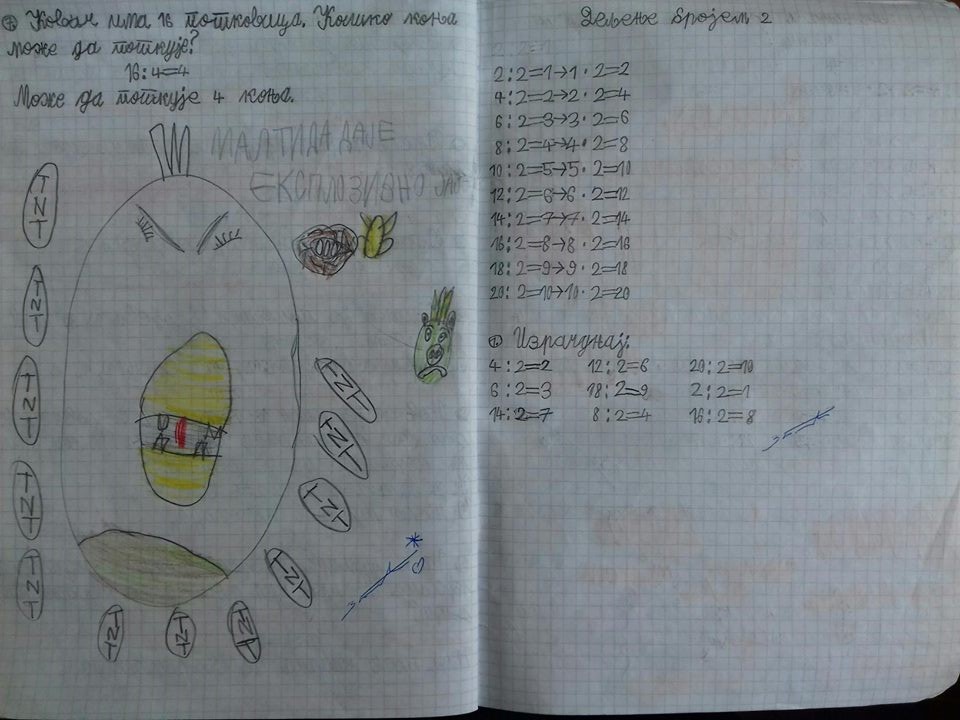 Ковач има 16 потковица. Колико коња
може да поткује?
16:4=4
Може да поткује 4 коња.
МАТИЛДА ДАЈЕ
ЕКСПЛОЗИВНО
TNT
TNT
TNT
TNT
TNT
TNT
TNT
TNT
TNT
TNT
TNT
TNT
Дељење бројем 2
2:2=1→1·2=2
4:2=2→2·2=4
6:2=3→3·2=6
8:2=4→4·2=8
10:2=5→5·2=10
12:2=6→6·2=12
14:2=7→7·2=14
16:2=8→8·2=16
18:2=9→9·2=18
20:2=10→10·2=20
1. Израчунај:
4:2=2 12:2=6 20:2=10
6:2=3 18:2=9 2:2=1
14:2=7 8:2=4 16:2=8